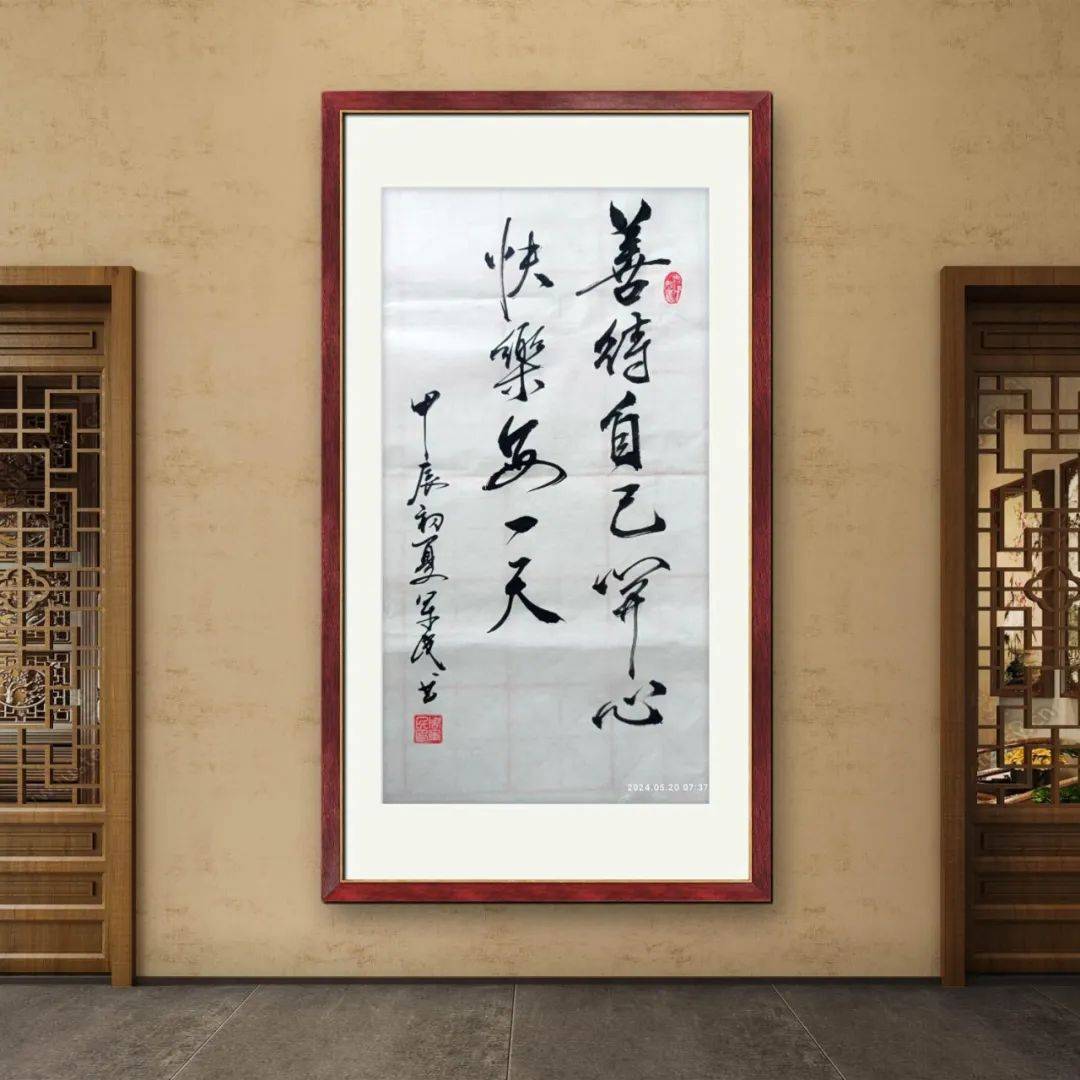 善待自己開心
快樂每一天
甲辰初夏军民书
2024.05.20 07:37